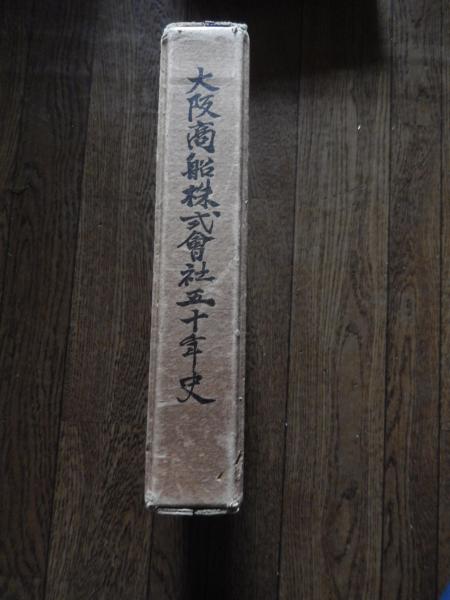 大阪商船株式會社五十年史